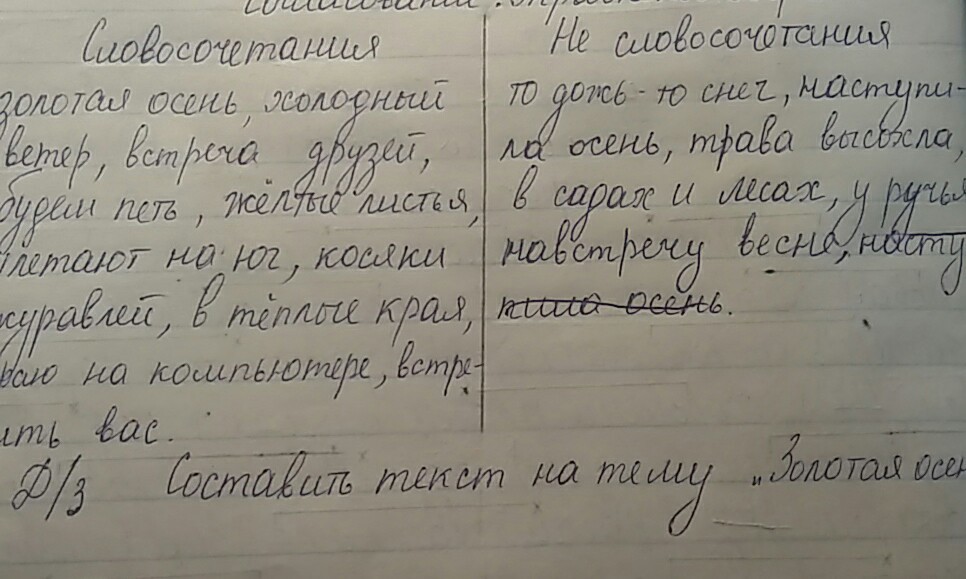 Словосочетания
золотая осень, холодный
ветер, встреча друзей,
будем петь, жёлтые листья,
летают на юг, косяки
журавлей, в тёплые края,
на компьютере, встре-
ить вас.
Не словосочетания
то дожь - то снег, наступи-
ла осень, трава высохла,
в садах и лесах, у ручья
навстречу весне, насту
пила осень.
Д/з Составить текст на тему „Золотая осен